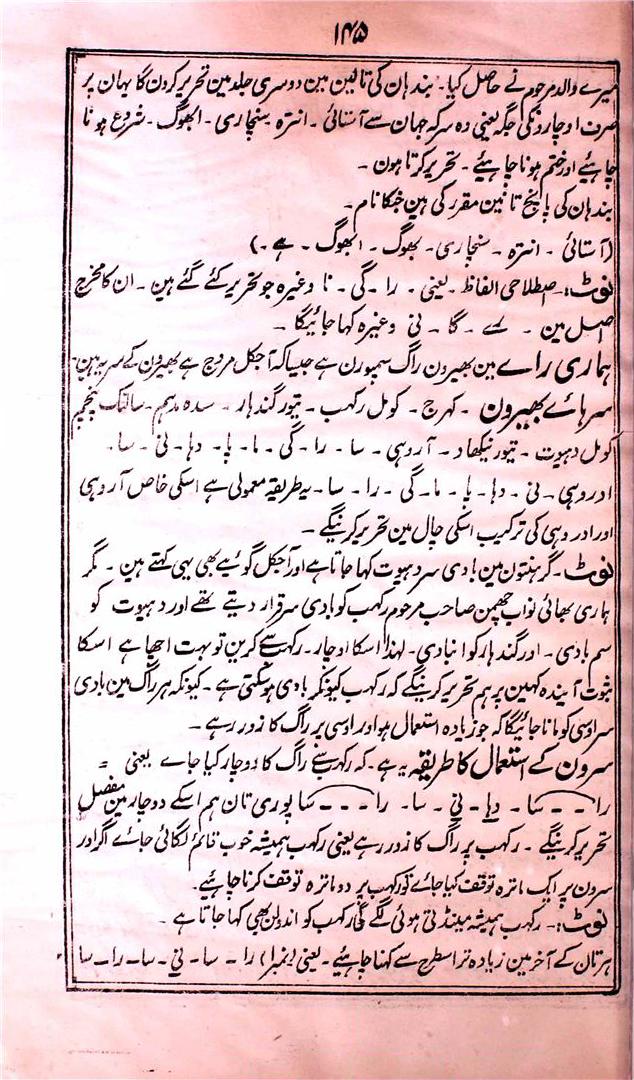 ۱۴۵
میرے والد مرحوم نے حاصل کیا۔ بندہان کی تانین مین دوسری جلد مین تحریر کرون گا یہان پر
صرف اوچار و نکی جگہ یعنی وہ سرکہ جہان سے آستائی۔ انترہ سنچاری۔ ابھوگ۔ شروع ہونا
چاہئیے اور ختم ہونا چاہیئے۔ تحریر کرتا ہون۔
بندہان کی پانچ تانین مقرر کی ہین جنکا نام۔
(آستائی۔ انترہ۔ سنچاری۔ بھوگ۔ ابھوگ۔ ہے۔)
نوٹ:۔ اصطلاحی الفاظ۔ یعنی۔ را۔ گی۔ نا وغیرہ جو تحریر کئے گئے ہین۔ ان کا مخرج
اصل مین۔ رے۔ گا۔ نی وغیرہ کہا جائیگا۔
ہماری راے مین بھیرون راگ سمپورن ہے جیسا کہ آجکل مروج ہے بھیرون کے سر یہ ہین۔
سرہاے بھیرون۔ کہرج۔ کومل رکہب۔ تیور گندہار۔ سدہ مدہم۔ سالنک پنچم
کومل دہیوت۔ تیور نیکھاد۔ آروہی۔ سا۔ را۔ گی۔ ما۔ پا۔ دہا۔ نی۔ سا۔
ادروہی۔ نی۔ دہا۔ پا۔ ما۔ گی۔ را۔ سا۔ یہ طریقہ معمولی ہے اسکی خاص آروہی
اور ادروہی کی ترکیب اسکی چال مین تحریر کرینگے۔
نوٹ۔ گرہنتون مین بادی سر دہیوت کہا جاتا ہے اور آجکل گوئیے بھی یہی کہتے ہین۔ مگر
ہماری بھائی نواب چھمن صاحب مرحوم رکہب کو بادی سر قرار دیتے تھے اور دہیوت کو
سم بادی۔ اور گندہار کو انبادی۔ لہذا اسکا اوچار۔ رکہب سے کرین تو بہت اچھا ہے اسکا
ثبوت آیندہ کہین پر ہم تحریر کرینگے کہ رکہب کیونکر بادی ہو سکتی ہے۔ کیونکہ ہر راگ مین بادی
سر اوسی کو مانا جائیگا کہ جو زیادہ استعمال ہو اور اوسی پر راگ کا زور رہے۔
سرون کے استعمال کا طریقہ یہ ہے۔ کہ رکہب سے راگ کا اوچار کیا جاے یعنی =
را - - سا۔ دہا۔ نی۔ سا۔ را - - - سا پوری تان ہم اسکے اوچار مین مفصل
تحریر کرینگے۔ رکہب پر راگ کا زور رہے یعنی رکہب ہمیشہ خوب قائم لگائی جائے اگر اور
سرون پر ایک ماترہ توقف کیا جاے تو رکہب پر دو ماترہ توقف کرنا چاہیئے۔
نوٹ:۔ رکہب ہمیشہ مینڈتی ہوئی لگے گی رکہب کو اندولن بھی کہا جاتا ہے۔
ہر تان کے آخر مین زیادہ تر اسطرح سے کہنا چاہیئے۔ یعنی (نمبر۱) را۔ سا۔ نی۔ سا۔ را۔ سا